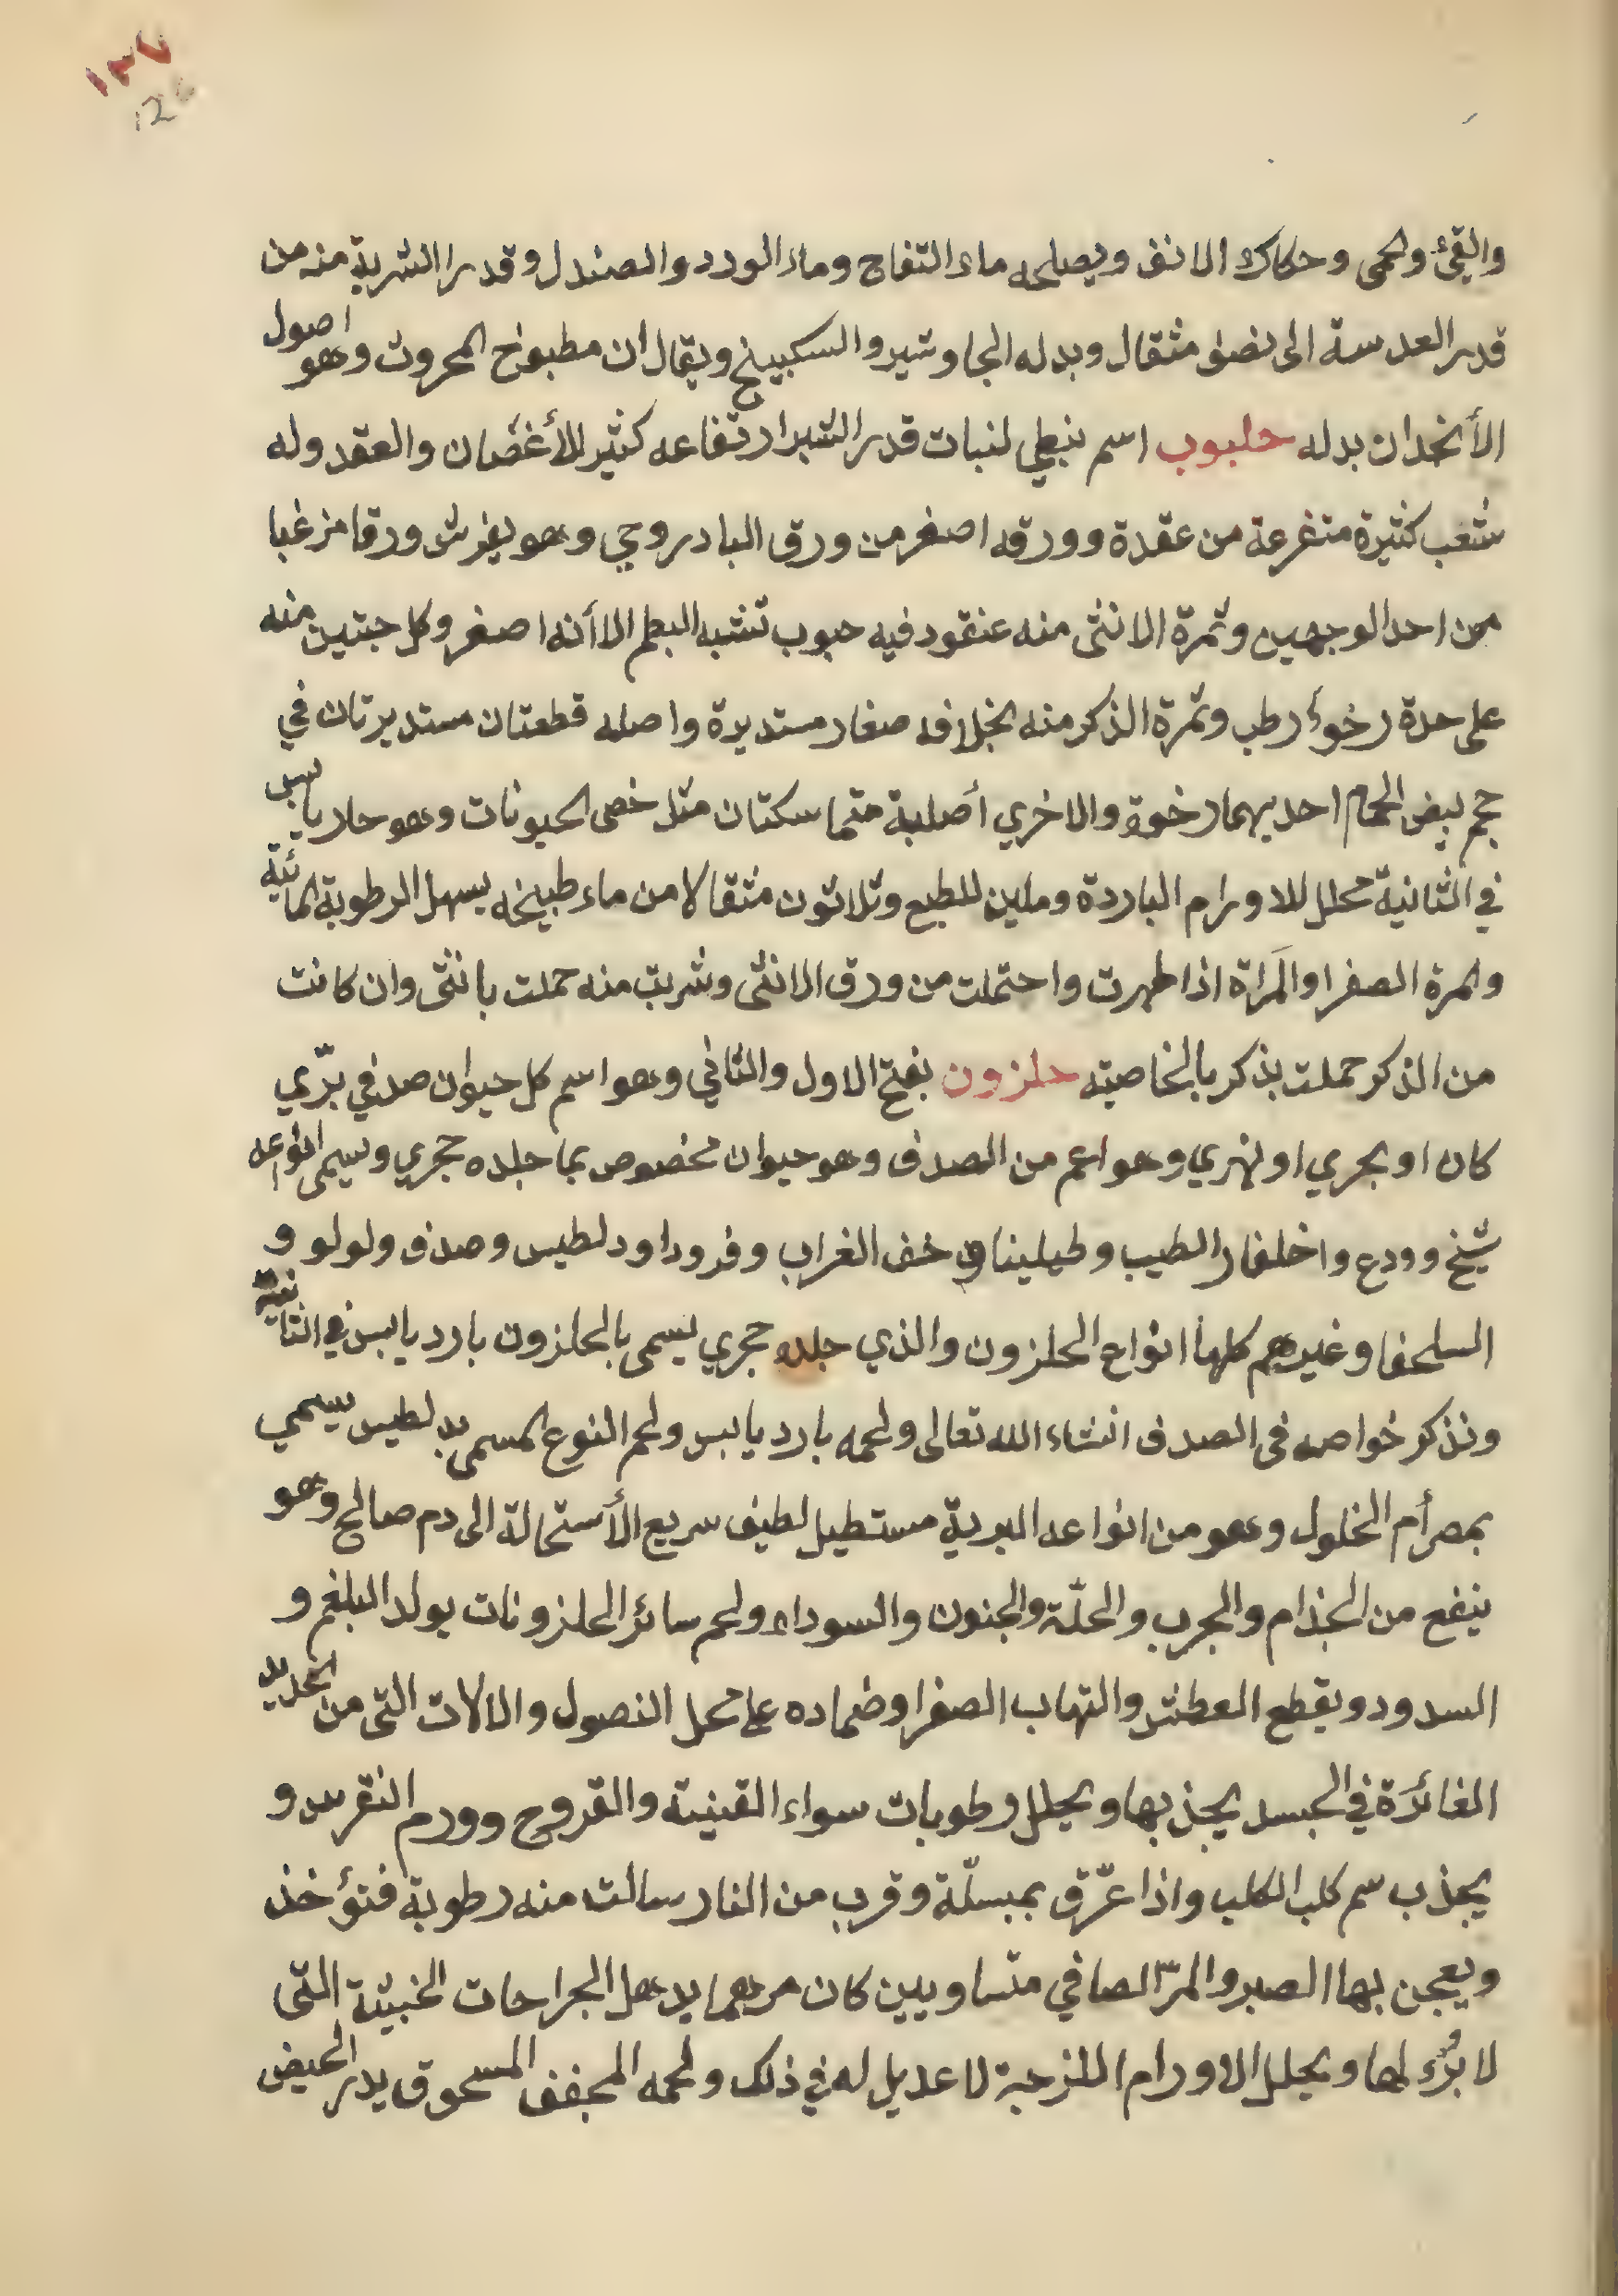 ١٢٧
126
والقئ والحمى وحكاك الانف ويصلحه ماء التفاح وماء الورد والصندل وقدر الشربة منه من
قدر العدسة الى نصف مثقال وبدله الجاوشير والسكبينج ويقال ان مطبوخ المحروث وهو اصول
الأنخدان بدله حلبوب اسم نبطي لنبات قدر الشبر ارتفاعه كثير للأغضان والعقد وله
شعب كثيرة متفرعة من عقدة وورقه اصغر من ورق البادروجي وهو يفرش ورقا مزغبا
من احد الوجهين وثمرة الانثى منه عنقود فيه حبوب تشبه البطم الا أنه اصغر وكل حبتين منه
على حدة رخوأ رطب وثمرة الذكر منه بخلافه صغار مستديرة واصله قطعتان مستديرتان في
حجم بيض الحمام احديهما رخوة والاخري أصلبة متماسكتان مثل خصى الحيونات وهو حار يابس
في الثانية محلل للاورام الباردة وملين للطبع وثلاثون مثقالا من ماء طبيخه يسهل الرطوبة المائية
والمرة الصفرا والمَراة اذا طهرت واحتملت من ورق الانثى وشربت منه حملت بانثى وان كانت
من الذكر حملت بذكر بالخاصيته حلزون بفتح الاول والثاني وهو اسم كل حيوان صدفي برّي
كان او بحري او نهري وهو اعم من الصدف وهو حيوان مخصوص بما جلده حجري ويسمى انواعه
شيخ وودع واظفار الطيب وطيلينا وخف الغراب وفرودا ودلطيس وصدف ولولو و
السلحفا وغيرهم كلها انواع الحلزون والذي جلده حجري يسمى بالحلزون بارد يابس في الثانية
ونذكر خواصه فى الصدف انشاء الله تعالى ولحمه بارد يابس ولحم النوع المسمى بدلطيس يسمي
بمصر أم الخلول وهو من انواعه البرية مستطيل لطيف سريع الأستحالة الى دم صالح وهو
ينفع من الجذام والجرب والحلّة والجنون والسوداء ولحم سائر الحلزونات يولد البلغم و
السدود ويقطع العطش والتهاب الصفرا وضماده على محل النصول والالات التى من الحديد
الغائرَة في الجسد يجذبها ويحلل رطوبات سواء القينية والقروح وورم النقرس و
يجذب سم كلب الكلب واذا عرّق بمبسلّة وقرب من النار سالت منه رطوبة فتؤخذ
ويعجن بها الصبر والمرّ الصافي متساويين كان مرهما يدهل الجراحات الخبيثة التى
لا بُرء لها ويحلل الاورام اللزجة لا عديل له في ذلك ولحمه المجفف المسحوق يدر الحيض